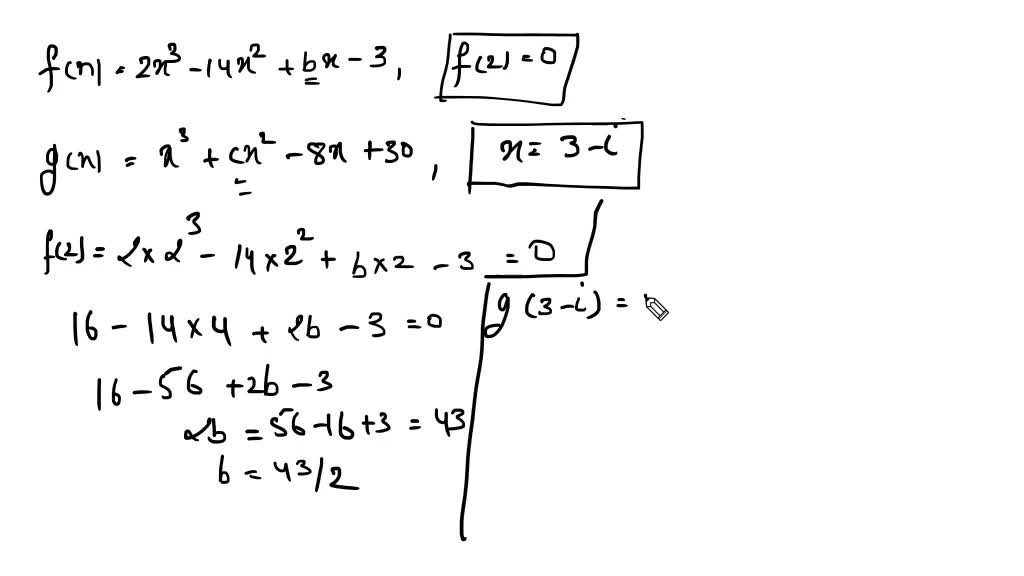 f(n) = 2x³ - 14x² + bx - 3, f(2) = 0
g(n) = x³ + cx² - 8x + 30, x = 3 - i
f(2) = 2 × 2³ - 14 × 2² + b × 2 - 3 = 0
16 - 14 × 4 + 2b - 3 = 0
16 - 56 + 2b - 3
2b = 56 - 16 + 3 = 43
b = 43/2
g(3 - i) =